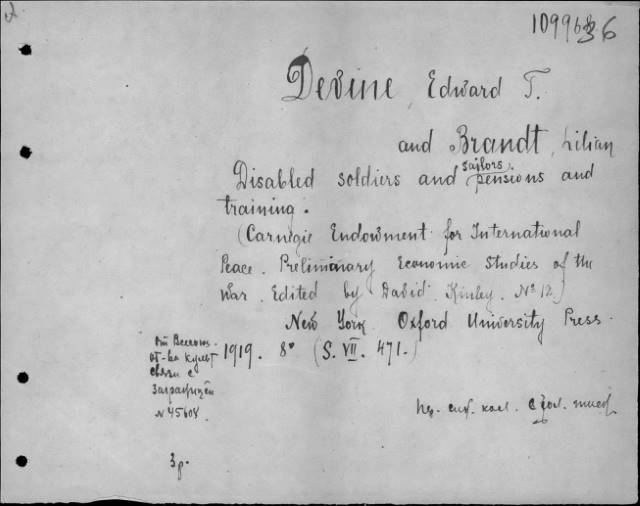 Devine, Edward T.
and Brandt, Lilian
Disabled soldiers and sailors. pensions and
training.
(Carnegie Endowment for International
Peace. Preliminary Economic Studies of the
War. Edited by David Kinley. № 12.)
New York. Oxford University Press.
1919. 8° (S. VII. 471.)
От Всесоюз.
об-ва культ
связи с
заграницей
№ 45608
3 р.